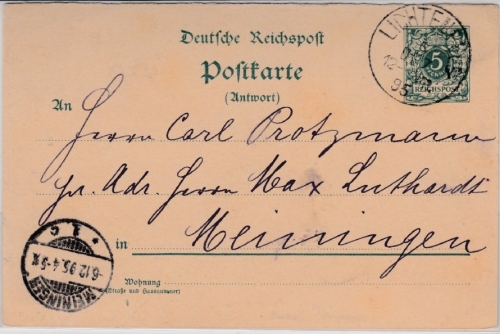 Deutsche Reichspost
Postkarte
(Antwort)
5
REICHSPOST
95
An
Herrn Carl Protzmann
pr. Adr. Herrn Max Luthardt
in Meiningen
MEININGEN
6.12.95.4-5N.
Wohnung
(Straße und Hausnummer)